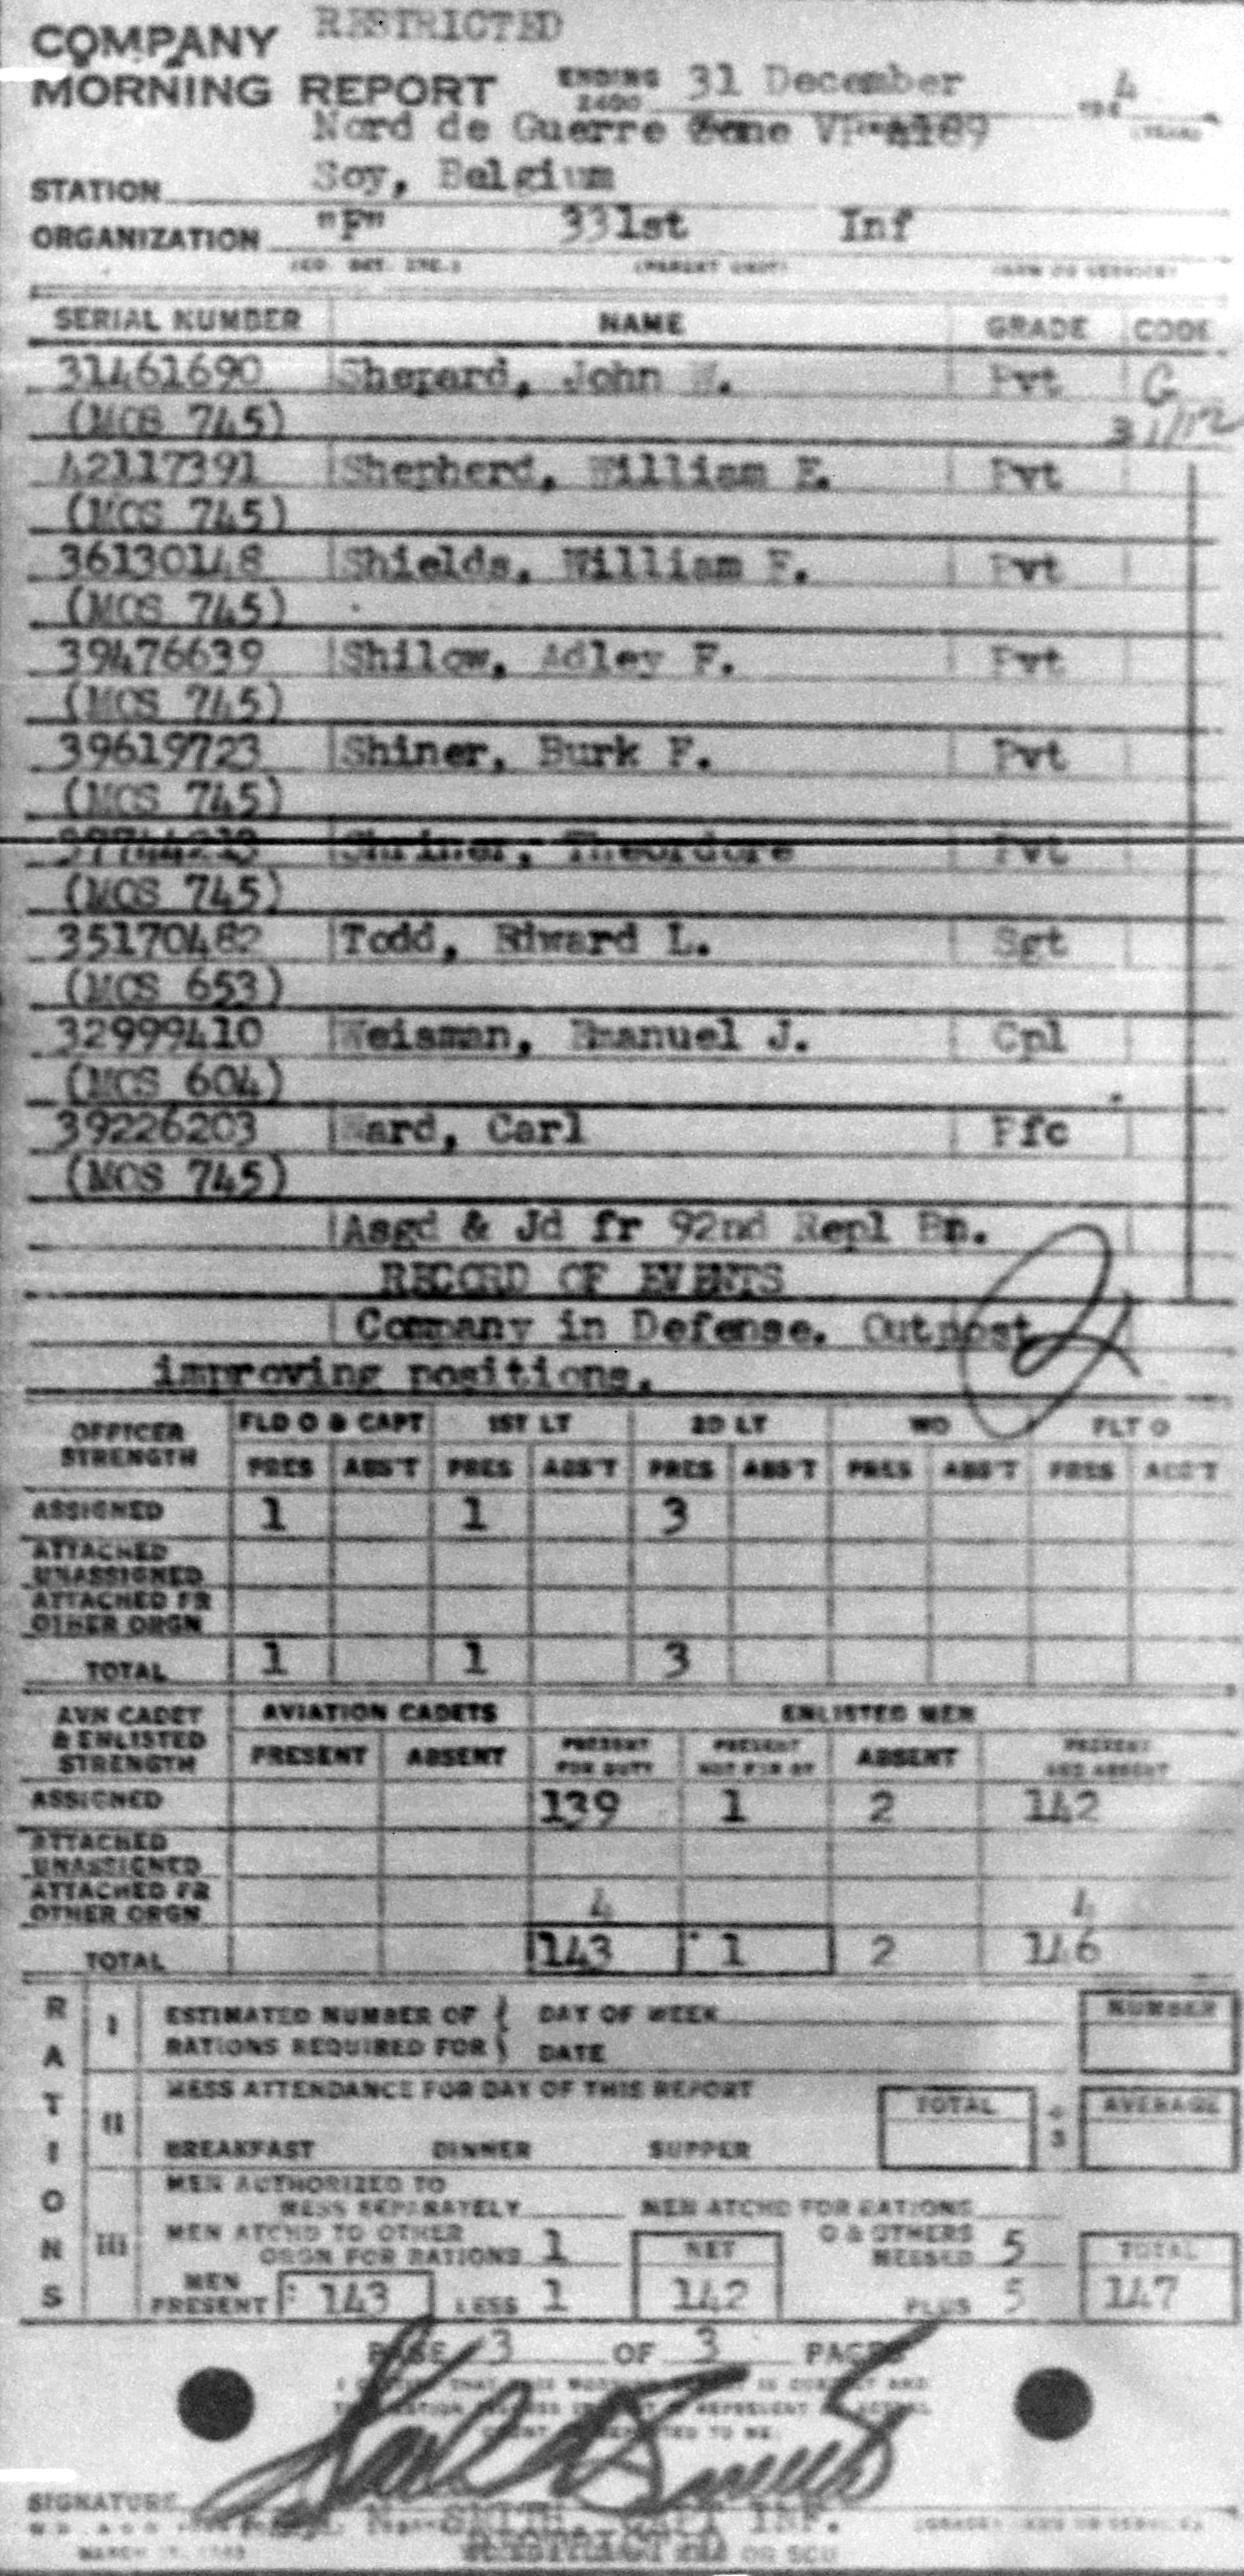 RESTRICTED
COMPANY
MORNING REPORT ENDING 2400 31 December 194 4
Nord de Guerre Zone VP-4189
STATION Soy, Belgium
ORGANIZATION "F" 331st Inf
(CO. DET. ETC.) (PARENT UNIT) (ARM OR SERVICE)
SERIAL NUMBER NAME GRADE CODE
31461690 Shepard, John W. Pvt G
(MOS 745) 31/12
42117391 Shepherd, William E. Pvt
(MOS 745)
36130148 Shields, William F. Pvt
(MOS 745)
39476639 Shilow, Adley F. Pvt
(MOS 745)
39619723 Shiner, Burk F. Pvt
(MOS 745)
Shriner, Theordore Pvt
(MOS 745)
35170482 Todd, Edward L. Sgt
(MOS 653)
32999410 Weisman, Emanuel J. Cpl
(MOS 604)
39226203 Ward, Carl Pfc
(MOS 745)
Asgd & Jd fr 92nd Repl Bn.
RECORD OF EVENTS
Company in Defense. Outpost
improving positions.
OFFICER STRENGTH FLD O & CAPT 1ST LT 2D LT WO FLT O
PRES ABS'T PRES ABS'T PRES ABS'T PRES ABS'T PRES ABS'T
ASSIGNED 1 1 3
ATTACHED UNASSIGNED
ATTACHED FR OTHER ORGN
TOTAL 1 1 3
AVN CADET & ENLISTED STRENGTH AVIATION CADETS ENLISTED MEN
PRESENT ABSENT PRESENT FOR DUTY PRESENT NOT FOR DY ABSENT PRESENT AND ABSENT
ASSIGNED 139 1 2 142
ATTACHED UNASSIGNED
ATTACHED FR OTHER ORGN 4 4
TOTAL 143 1 2 146
RATIONS
I ESTIMATED NUMBER OF DAY OF WEEK NUMBER
RATIONS REQUIRED FOR DATE
II MESS ATTENDANCE FOR DAY OF THIS REPORT TOTAL ÷ 3 AVERAGE
BREAKFAST DINNER SUPPER
III MEN AUTHORIZED TO
MESS SEPARATELY MEN ATCHD FOR RATIONS
MEN ATCHD TO OTHER ORGN FOR RATIONS 1 NET O & OTHERS MESSED 5 TOTAL
MEN PRESENT 143 LESS 1 142 PLUS 5 147
PAGE 3 OF 3 PAGES
SIGNATURE
N. SMITH, CAPT INF.
RESTRICTED